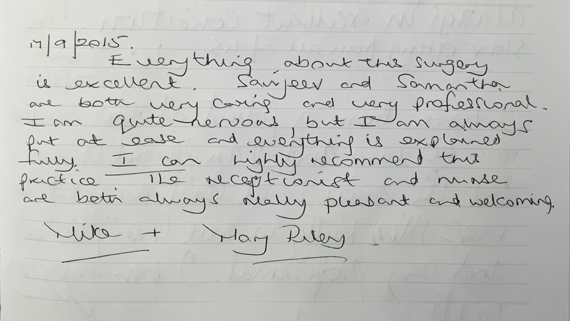 17/9/2015.
Everything about this surgery
is excellent. Sanjeev and Samantha
are both very caring and very professional.
I am quite nervous, but I am always
put at ease and everything is explained
fully. I can highly recommend this
practice. The receptionist and nurse
are both always really pleasant and welcoming.
Mike + Mary Riley.